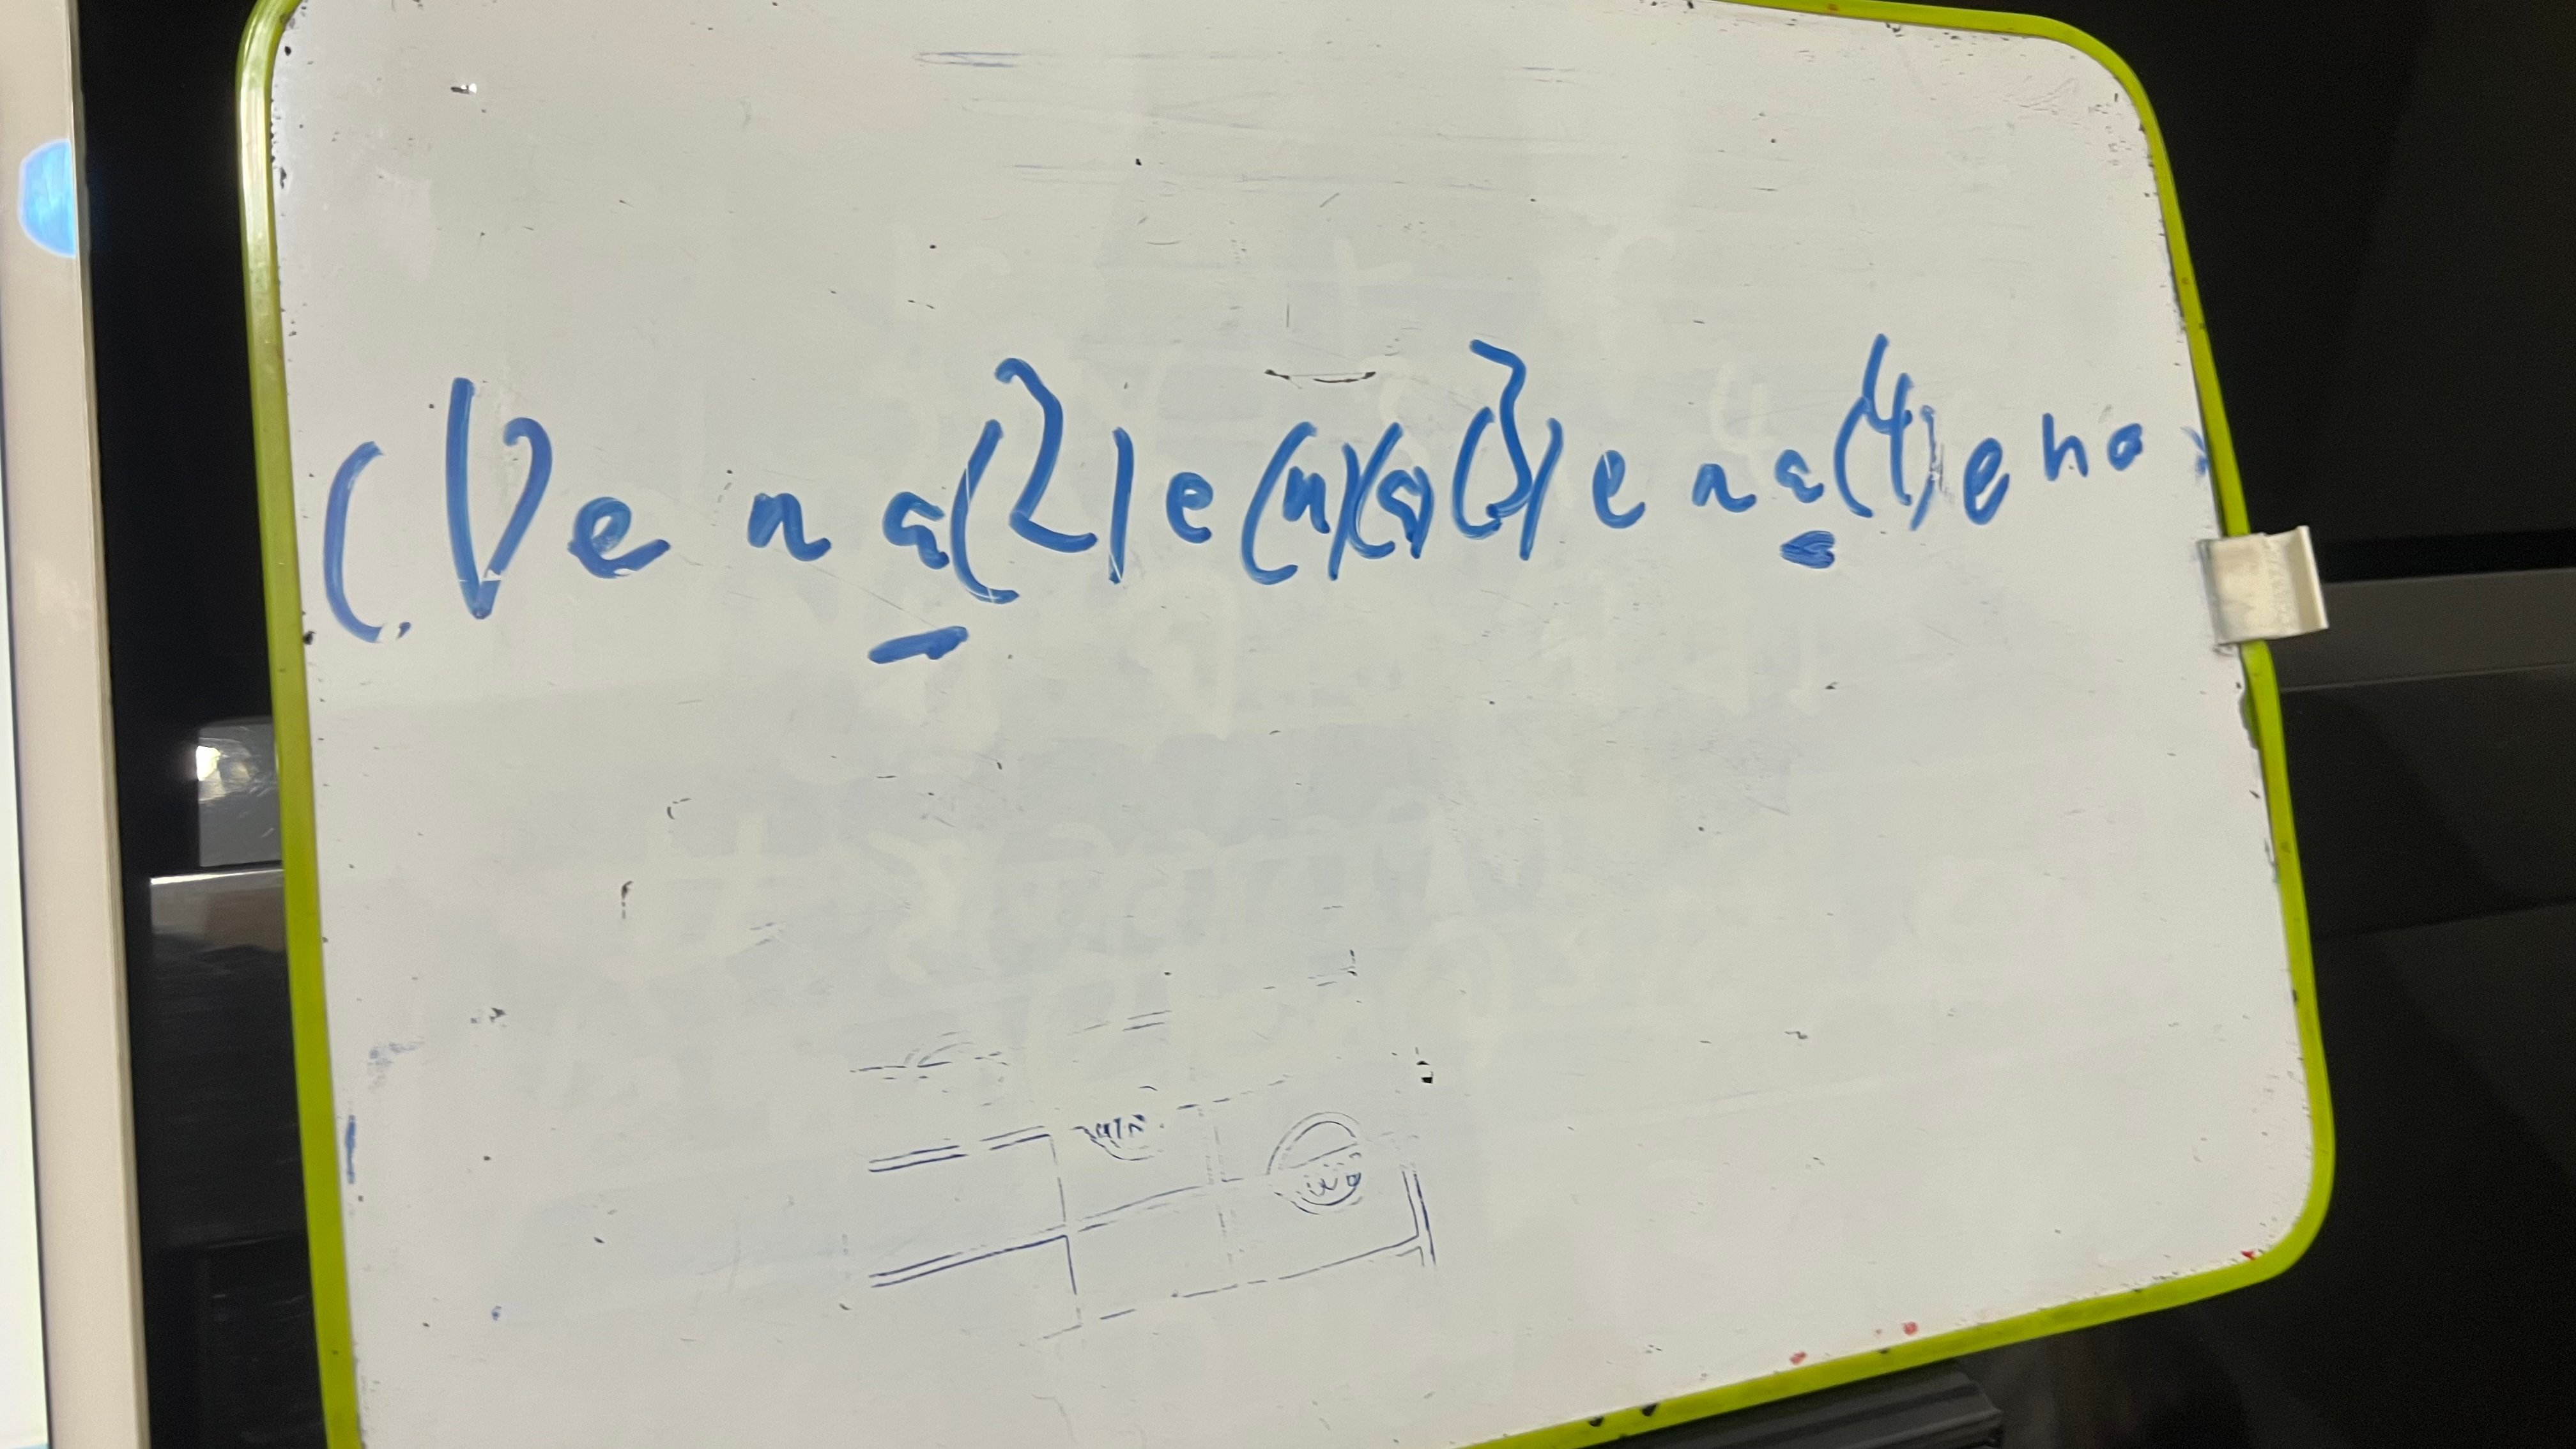 (1) e n a (2) e (n)(a (3) e n a (4) e n a